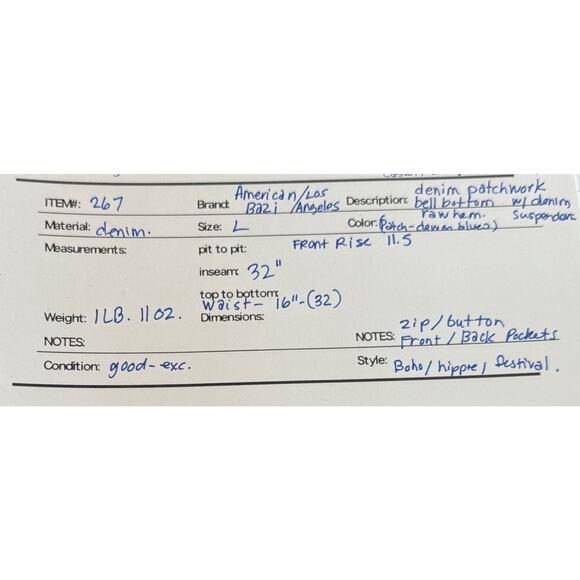 American/Los denim patchwork
ITEM#: 267 Brand: Bazi /Angeles Description: bell bottom w/denim
Material: denim. Size: L Color: raw hem. Suspenders
(Patch-denim blues)
Measurements: pit to pit: FRONT RISE 11.5
inseam: 32"
top to bottom:
Waist- 16"-(32)
Weight: 1LB. 11oz. Dimensions:
zip/button
NOTES: NOTES: Front/Back Pockets
Condition: good-exc. Style: Boho/hippie/festival.